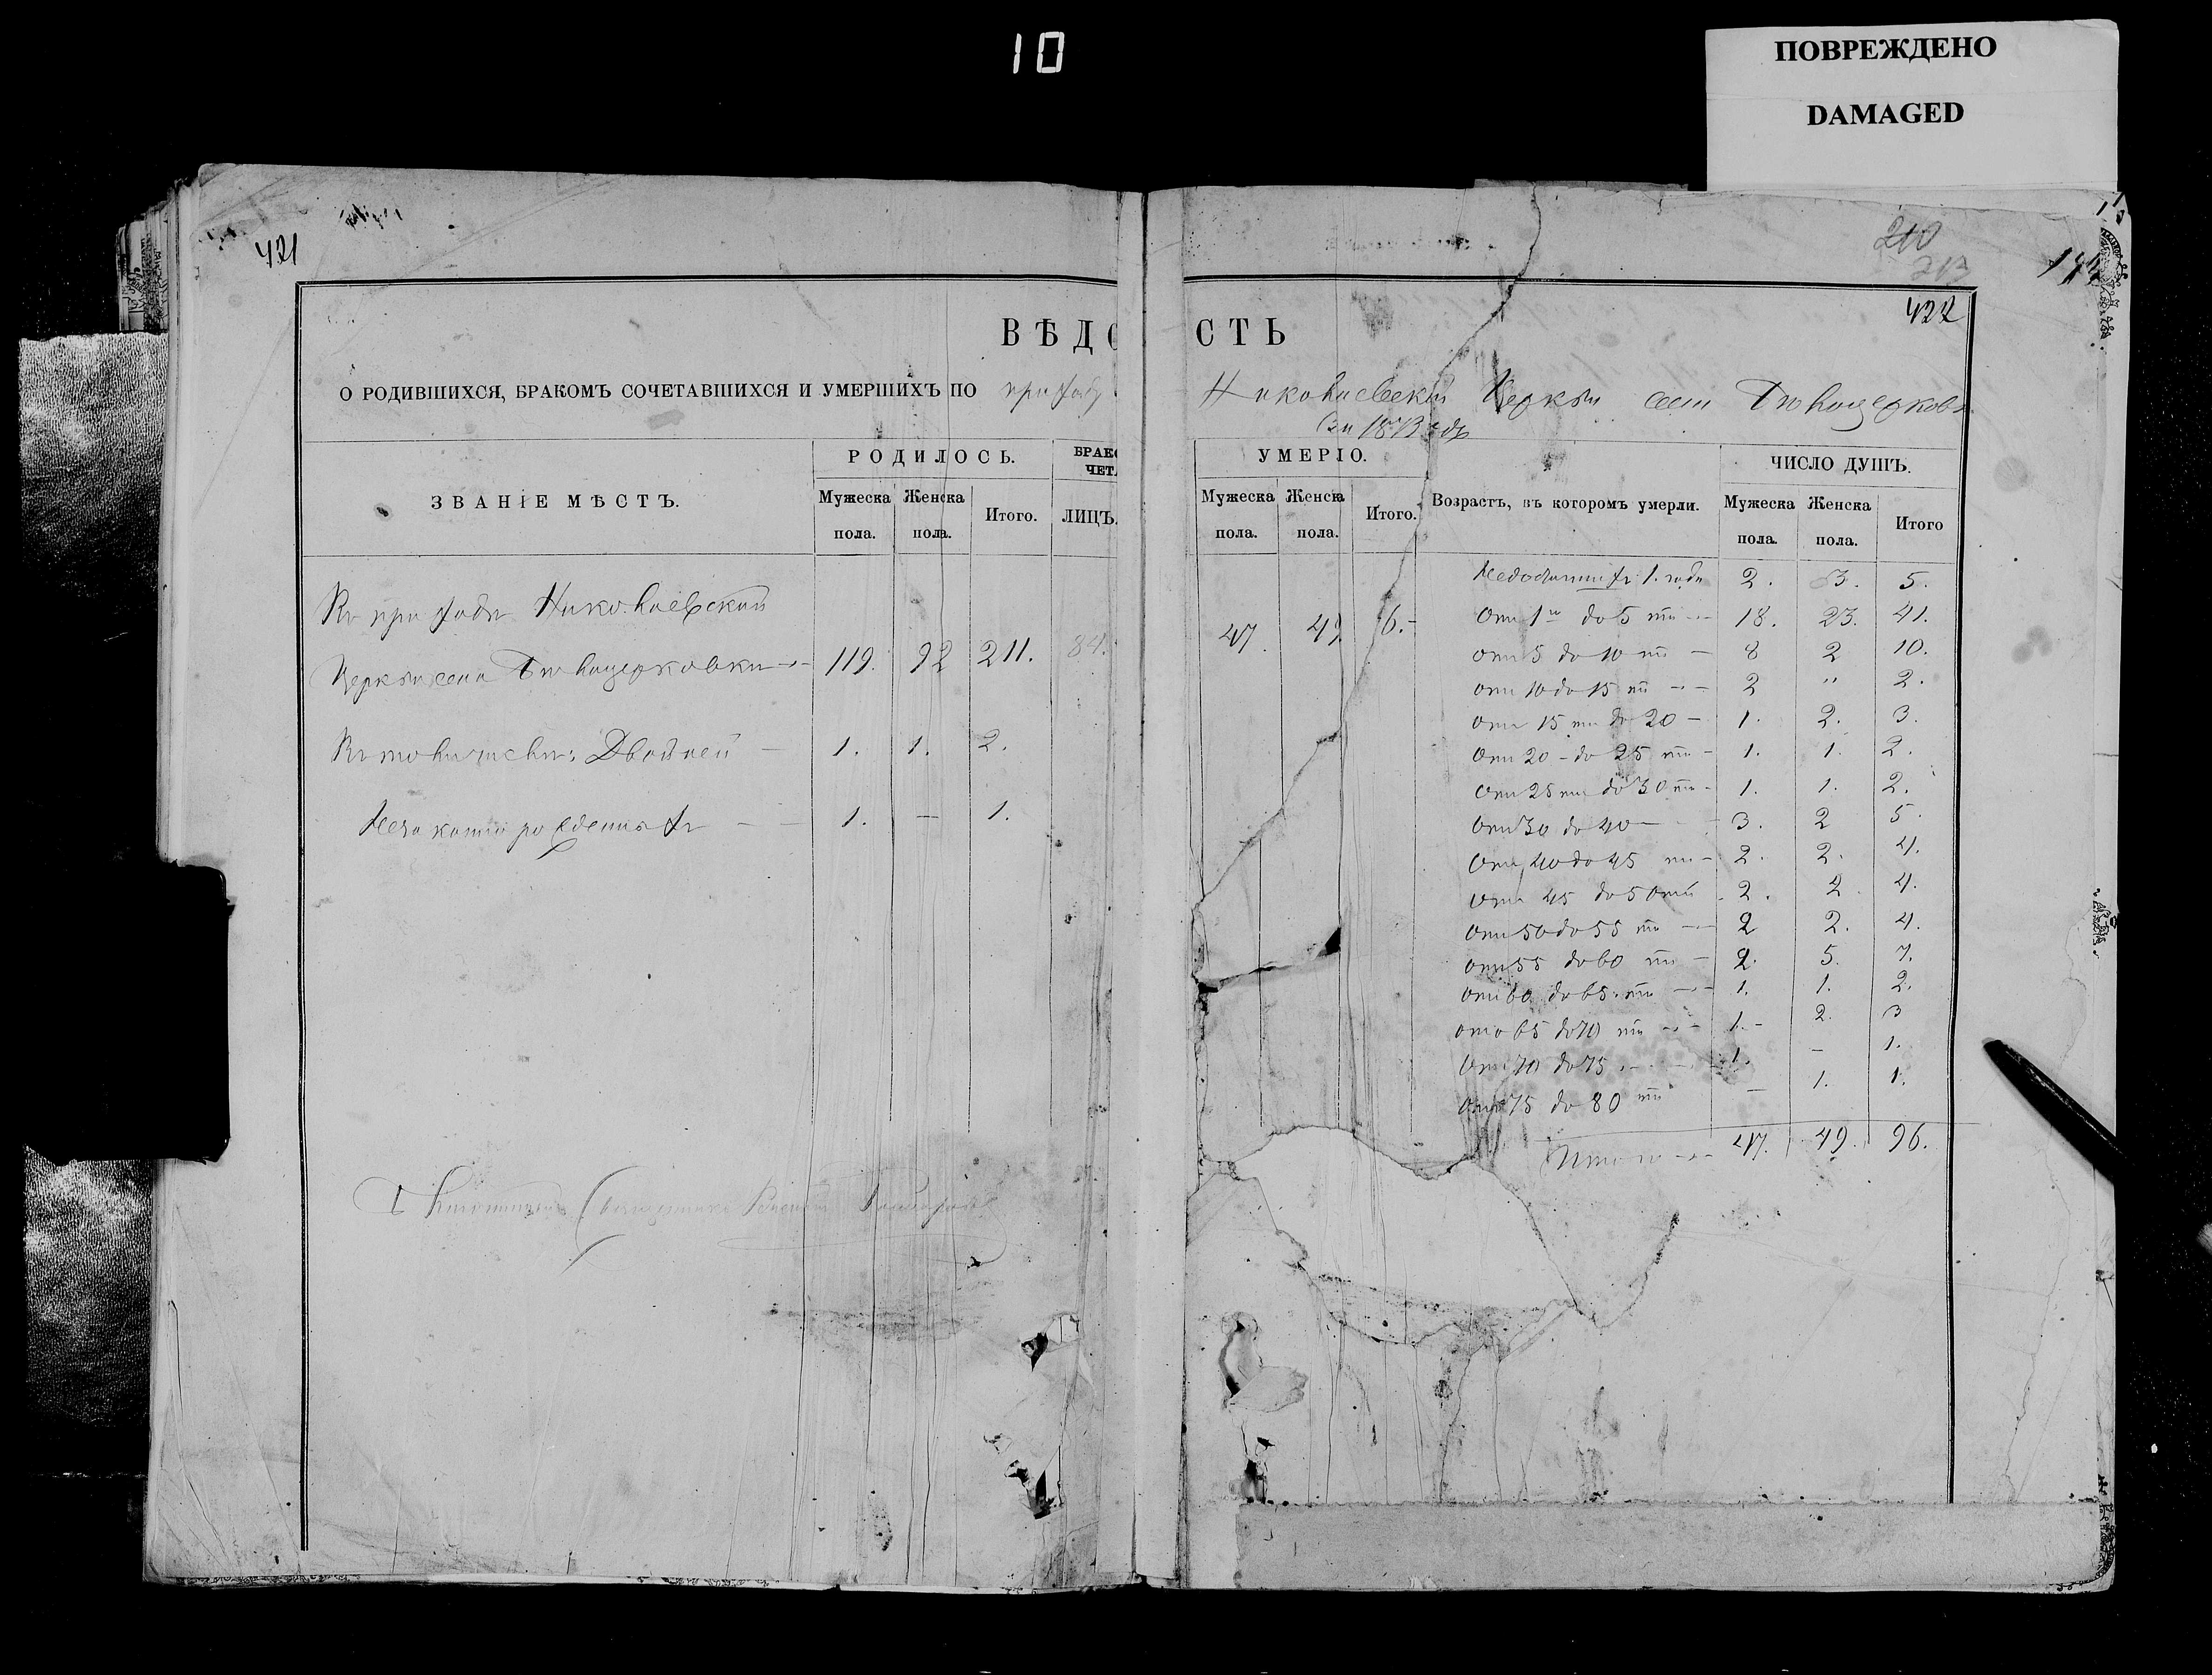 10
ПОВРЕЖДЕНО
DAMAGED
421
210
213
422
ВѢДО
СТЬ
О РОДИВШИХСЯ, БРАКОМЪ СОЧЕТАВШИХСЯ И УМЕРШИХЪ ПО приходу
Николаевской Церкви села Бѣлоцерковки
за 1873 годъ
ЗВАНІЕ МѢСТЪ.
РОДИЛОСЬ.
Мужеска пола.
Женска пола.
Итого.
БРАКО
ЧЕТА
ЛИЦЪ.
УМЕРЛО.
Мужеска пола.
Женска пола.
Итого.
Возрастъ, въ которомъ умерли.
ЧИСЛО ДУШЪ.
Мужеска пола.
Женска пола.
Итого
Въ приходѣ Николаевской
Церкви села Бѣлоцерковки 119. 92 211. 84.
Въ томъ числѣ: Двойней 1. 1. 2.
Незаконно рожденныхъ 1. — 1.
47. 49 6.
Недостигшихъ 1. года 2. 3. 5.
Отъ 1го до 5 ти 18. 23. 41.
отъ 5 до 10 ти 8 2 10.
отъ 10 до 15 ти 2 " 2.
отъ 15 ти до 20 1. 2. 3.
Отъ 20 до 25 ти 1. 1. 2.
Отъ 25 ти до 30 ти 1. 1. 2.
Отъ 30 до 40 3. 2 5.
Отъ 40 до 45 ти 2. 2. 4.
Отъ 45 до 50 ти 2. 2. 4.
Отъ 50 до 55 ти 2 2. 4.
отъ 55 до 60 ти 2. 5. 7.
отъ 60 до 65 ти 1. 1. 2.
отъ 65 до 70 ти 1. 2. 3
Отъ 70 до 75 1. — 1.
Отъ 75 до 80 ти — 1. 1.
Итого 47. 49. 96.
Священникъ